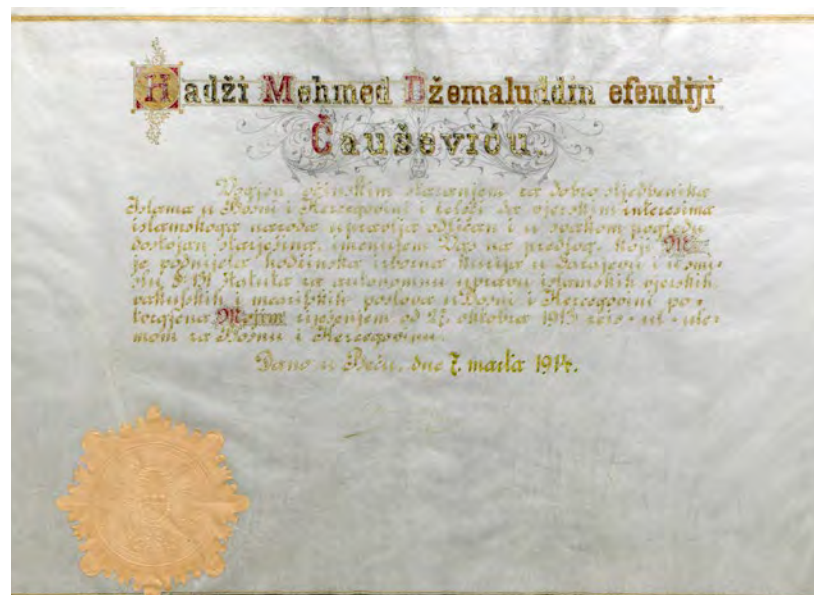 Hadži Mehmed Džemaluddin efendiji
Čauševiću.
Vogjen očinskim staranjem za dobro sljedbenika
Islama u Bosni i Hercegovini i želeći da vjerskim interesima
islamskoga naroda upravlja odličan i u svakom pogledu
dostojan starješina, imenujem Vas na predlog, koji Mi
je podnijela hodžinska izborna kurija u Sarajevu i u smi-
slu § Statuta za autonomnu upravu islamskih vjerskih,
vakufskih i mearifskih poslova u Bosni i Hercegovini po-
tvrgjena Mojim riješenjem od 27. oktobra 1913 reis-ul-ule-
mom za Bosnu i Hercegovinu.
Dano u Beču, dne 7. marta 1914.